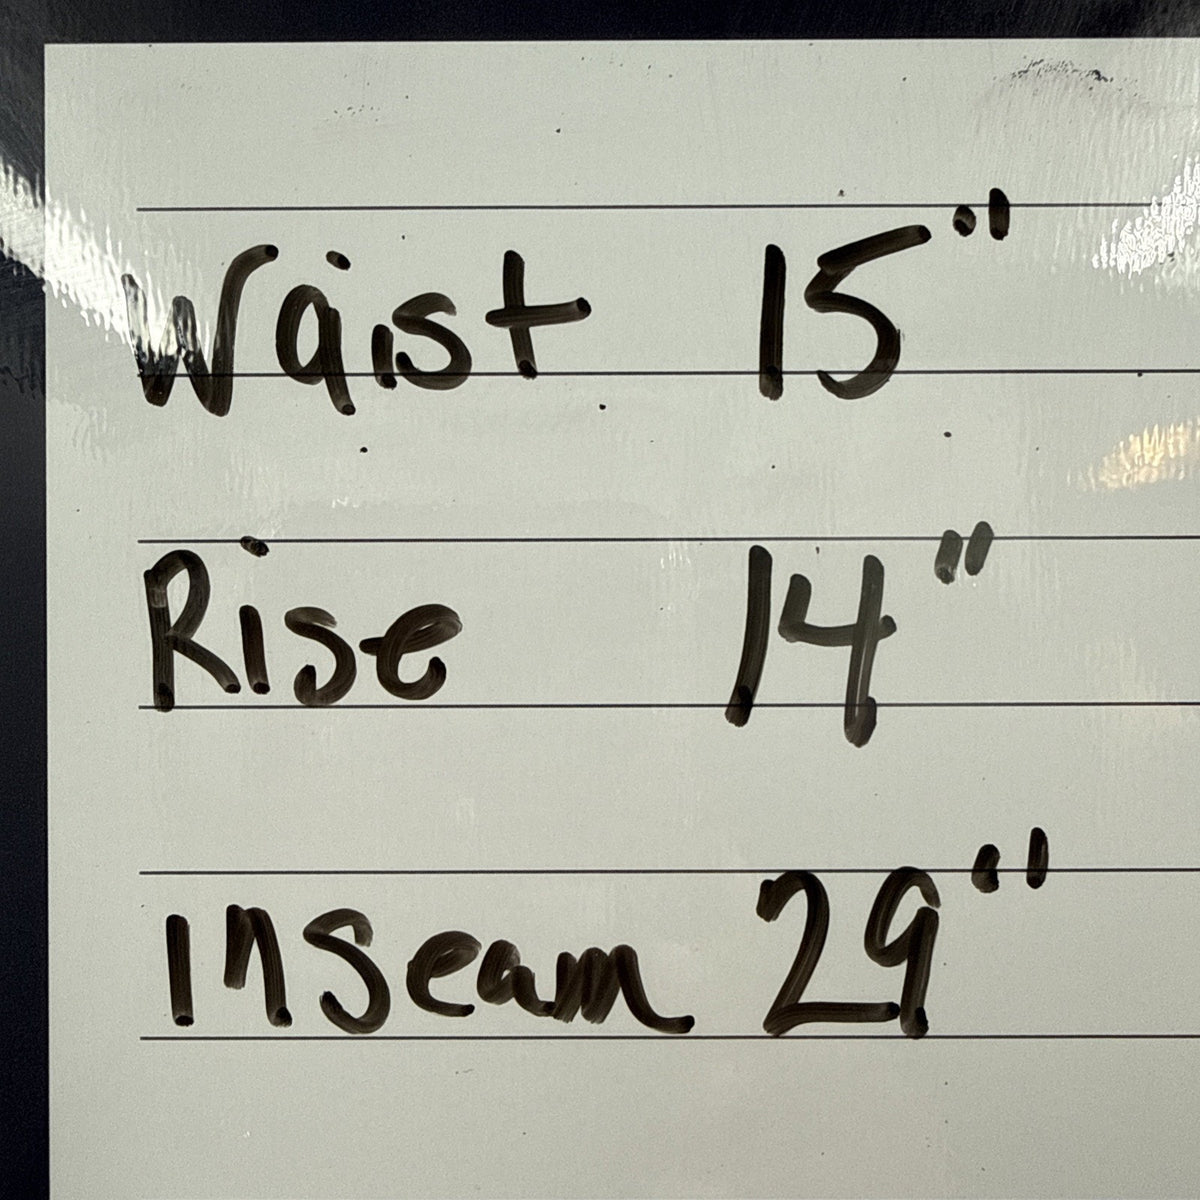 Waist 15"
Rise 14"
Inseam 29"